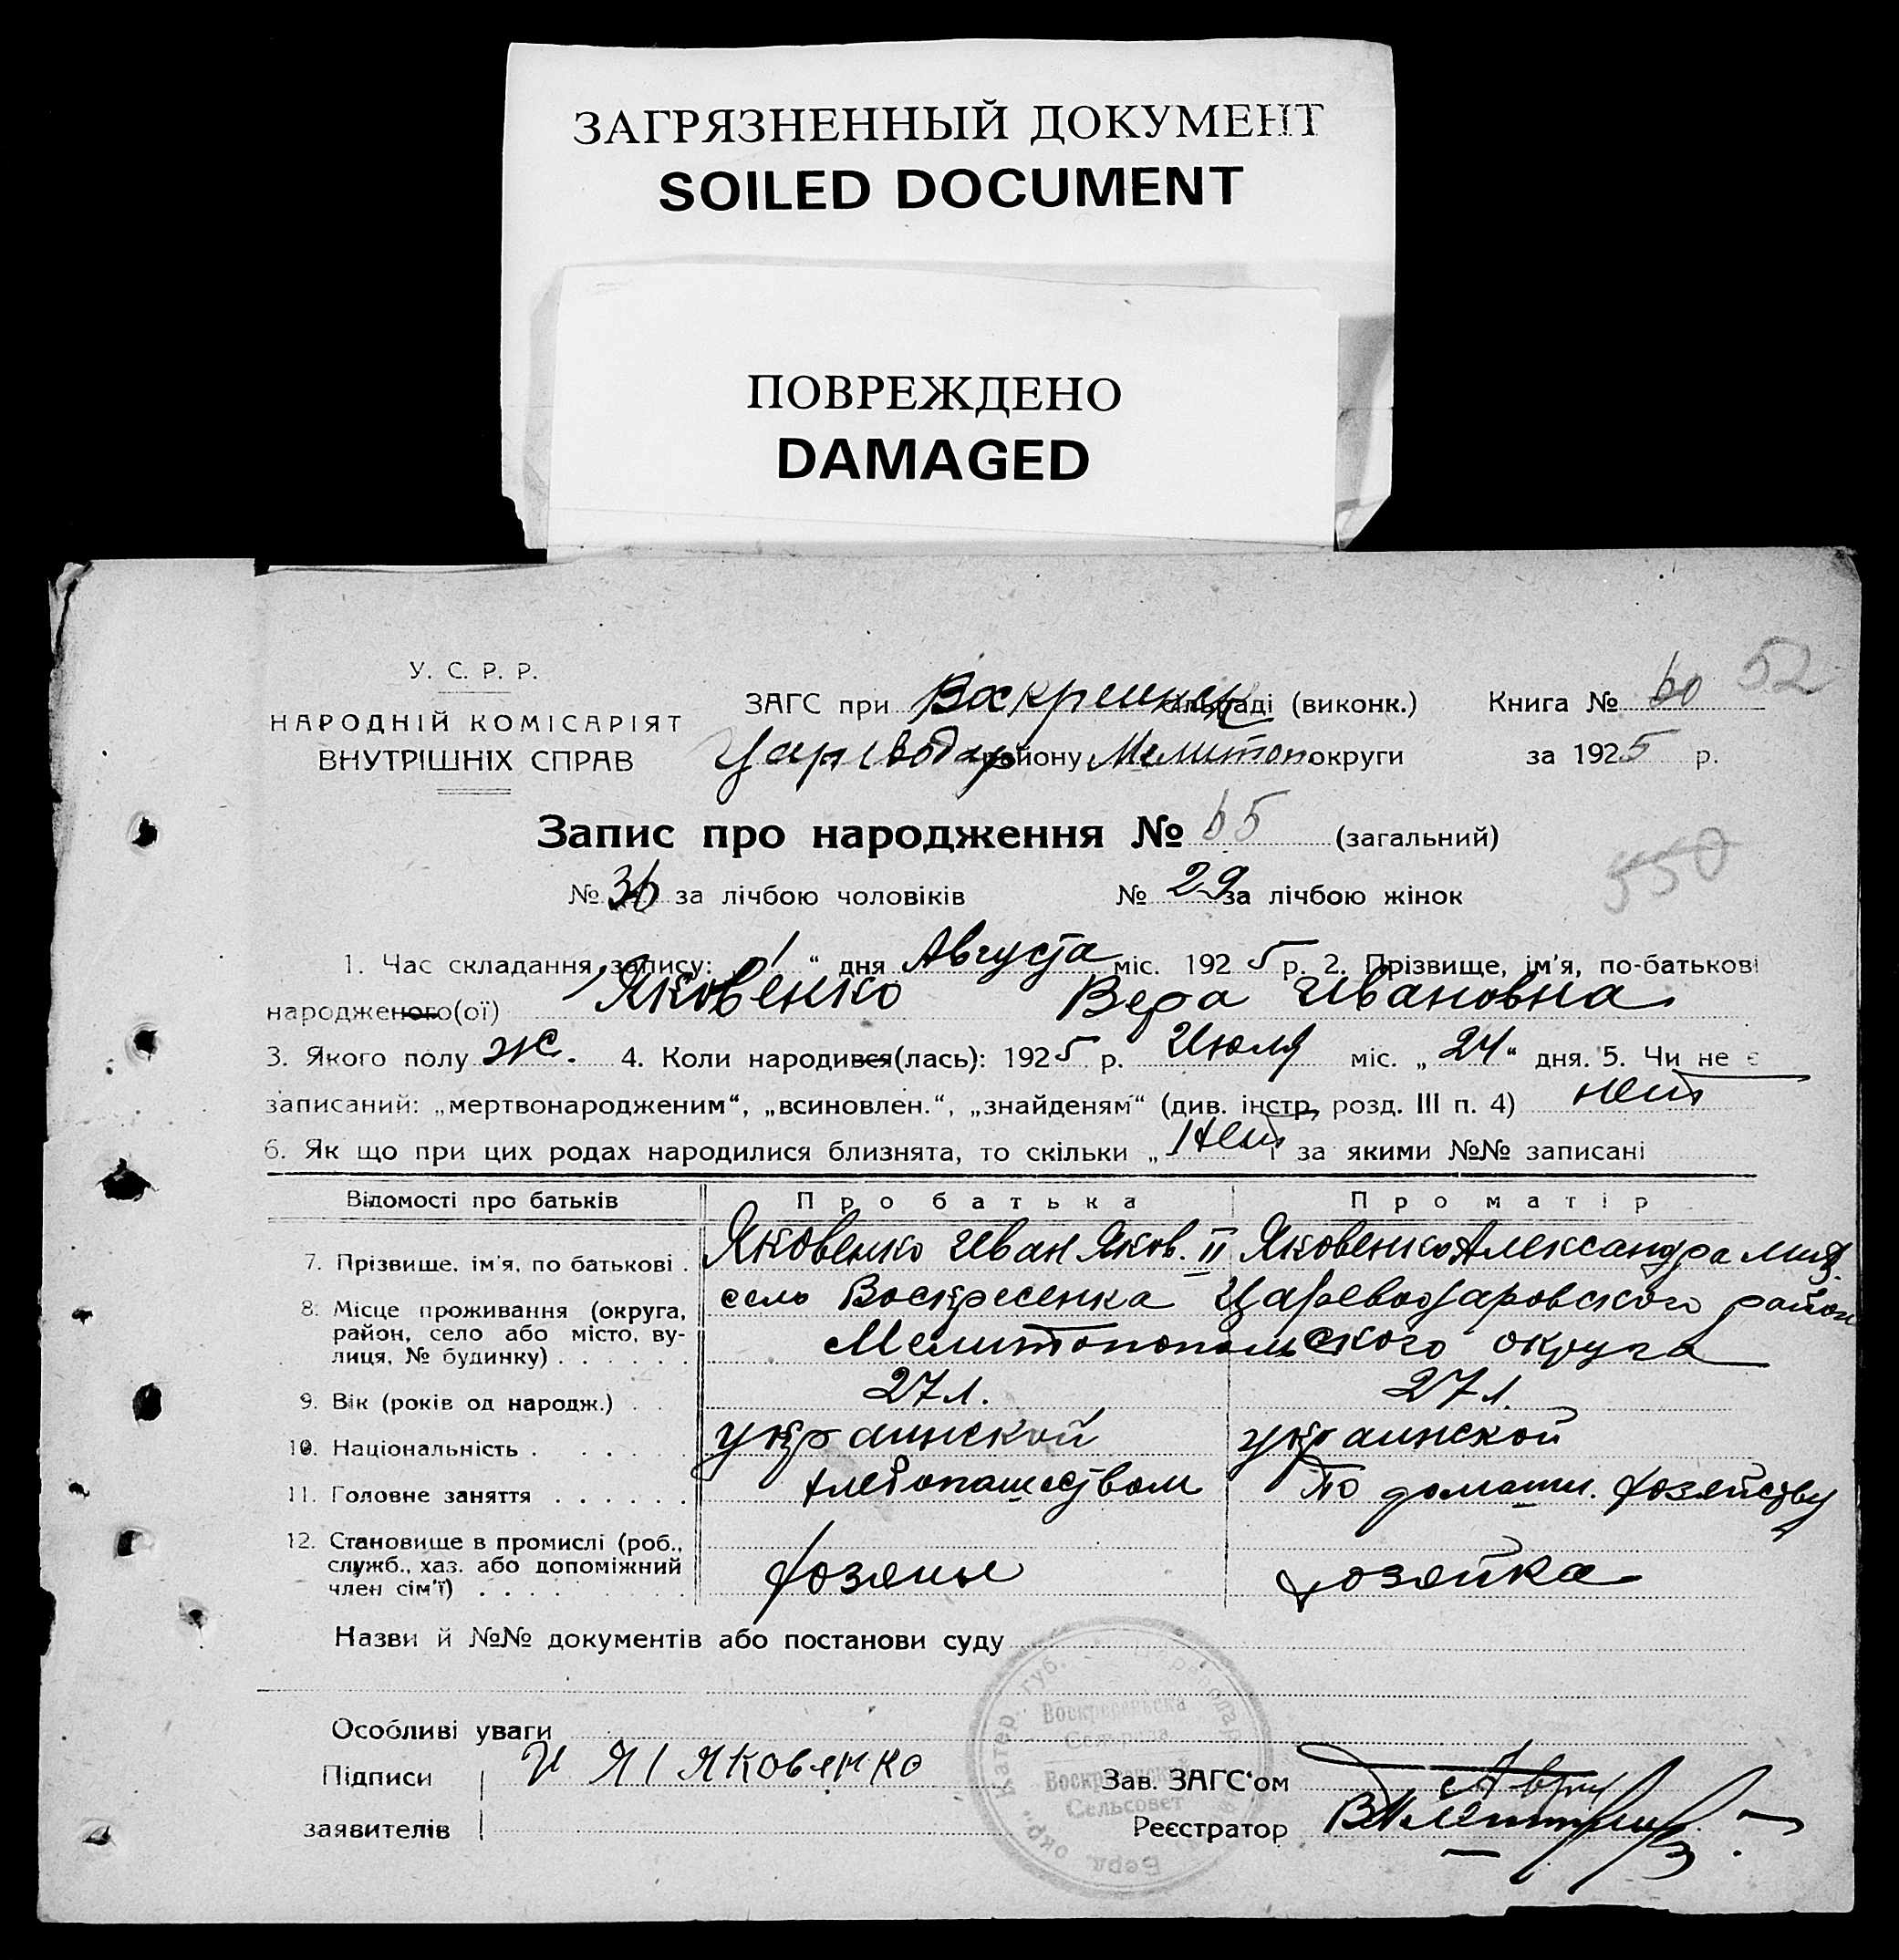 ЗАГРЯЗНЕННЫЙ ДОКУМЕНТ
SOILED DOCUMENT
ПОВРЕЖДЕНО
DAMAGED
52
У. С. Р. Р.
НАРОДНІЙ КОМІСАРІЯТ
ВНУТРІШНІХ СПРАВ
ЗАГС при Воскресенск сільраді (виконк.) Книга № 60
Цареводар району Мелитоп округи за 1925 р.
Запис про народження № 65 (загальний)
550
№ 36 за лічбою чоловіків № 29 за лічбою жінок
1. Час складання запису: „1“ дня Августа міс. 1925 р. 2. Прізвище, ім'я, по-батькові
народженого(ої) Яковенко Вера Ивановна
3. Якого полу ж. 4. Коли народився(лась): 1925 р. Июля міс. „24“ дня. 5. Чи не є
записаний: „мертвонародженим“, „всиновлен.“, „знайденям“ (див. інстр. розд. III п. 4) нет
6. Як що при цих родах народилися близнята, то скільки „Нет і за якими №№ записані
Відомості про батьків Про батька Про матір
7. Прізвище, ім'я, по батькові . Яковенко Иван Яков. II Яковенко Александра Мит.
8. Місце проживання (округа,
район, село або місто, ву-
лиця, № будинку) . . . . . .
село Воскресенка Цареводаровского район
Мелитопопольского округа
9. Вік (років од народж.) . . 27 л. 27 л.
10. Національність . . . . . украинской украинской
11. Головне заняття . . . . . . хлебопашеством По домашн. хозяйству
12. Становище в промислі (роб.,
служб., хаз. або допоміжний
член сім'ї) . . . . . .
хозяин хозяйка
Назви й №№ документів або постанови суду
Особливі уваги
Підписи И Я Яковенко
заявителів
Зав. ЗАГС'ом
Реєстратор
Катер. губ.
Берд. окр.
Воскресенська
Сельрада
Воскресенский
Сельсовет